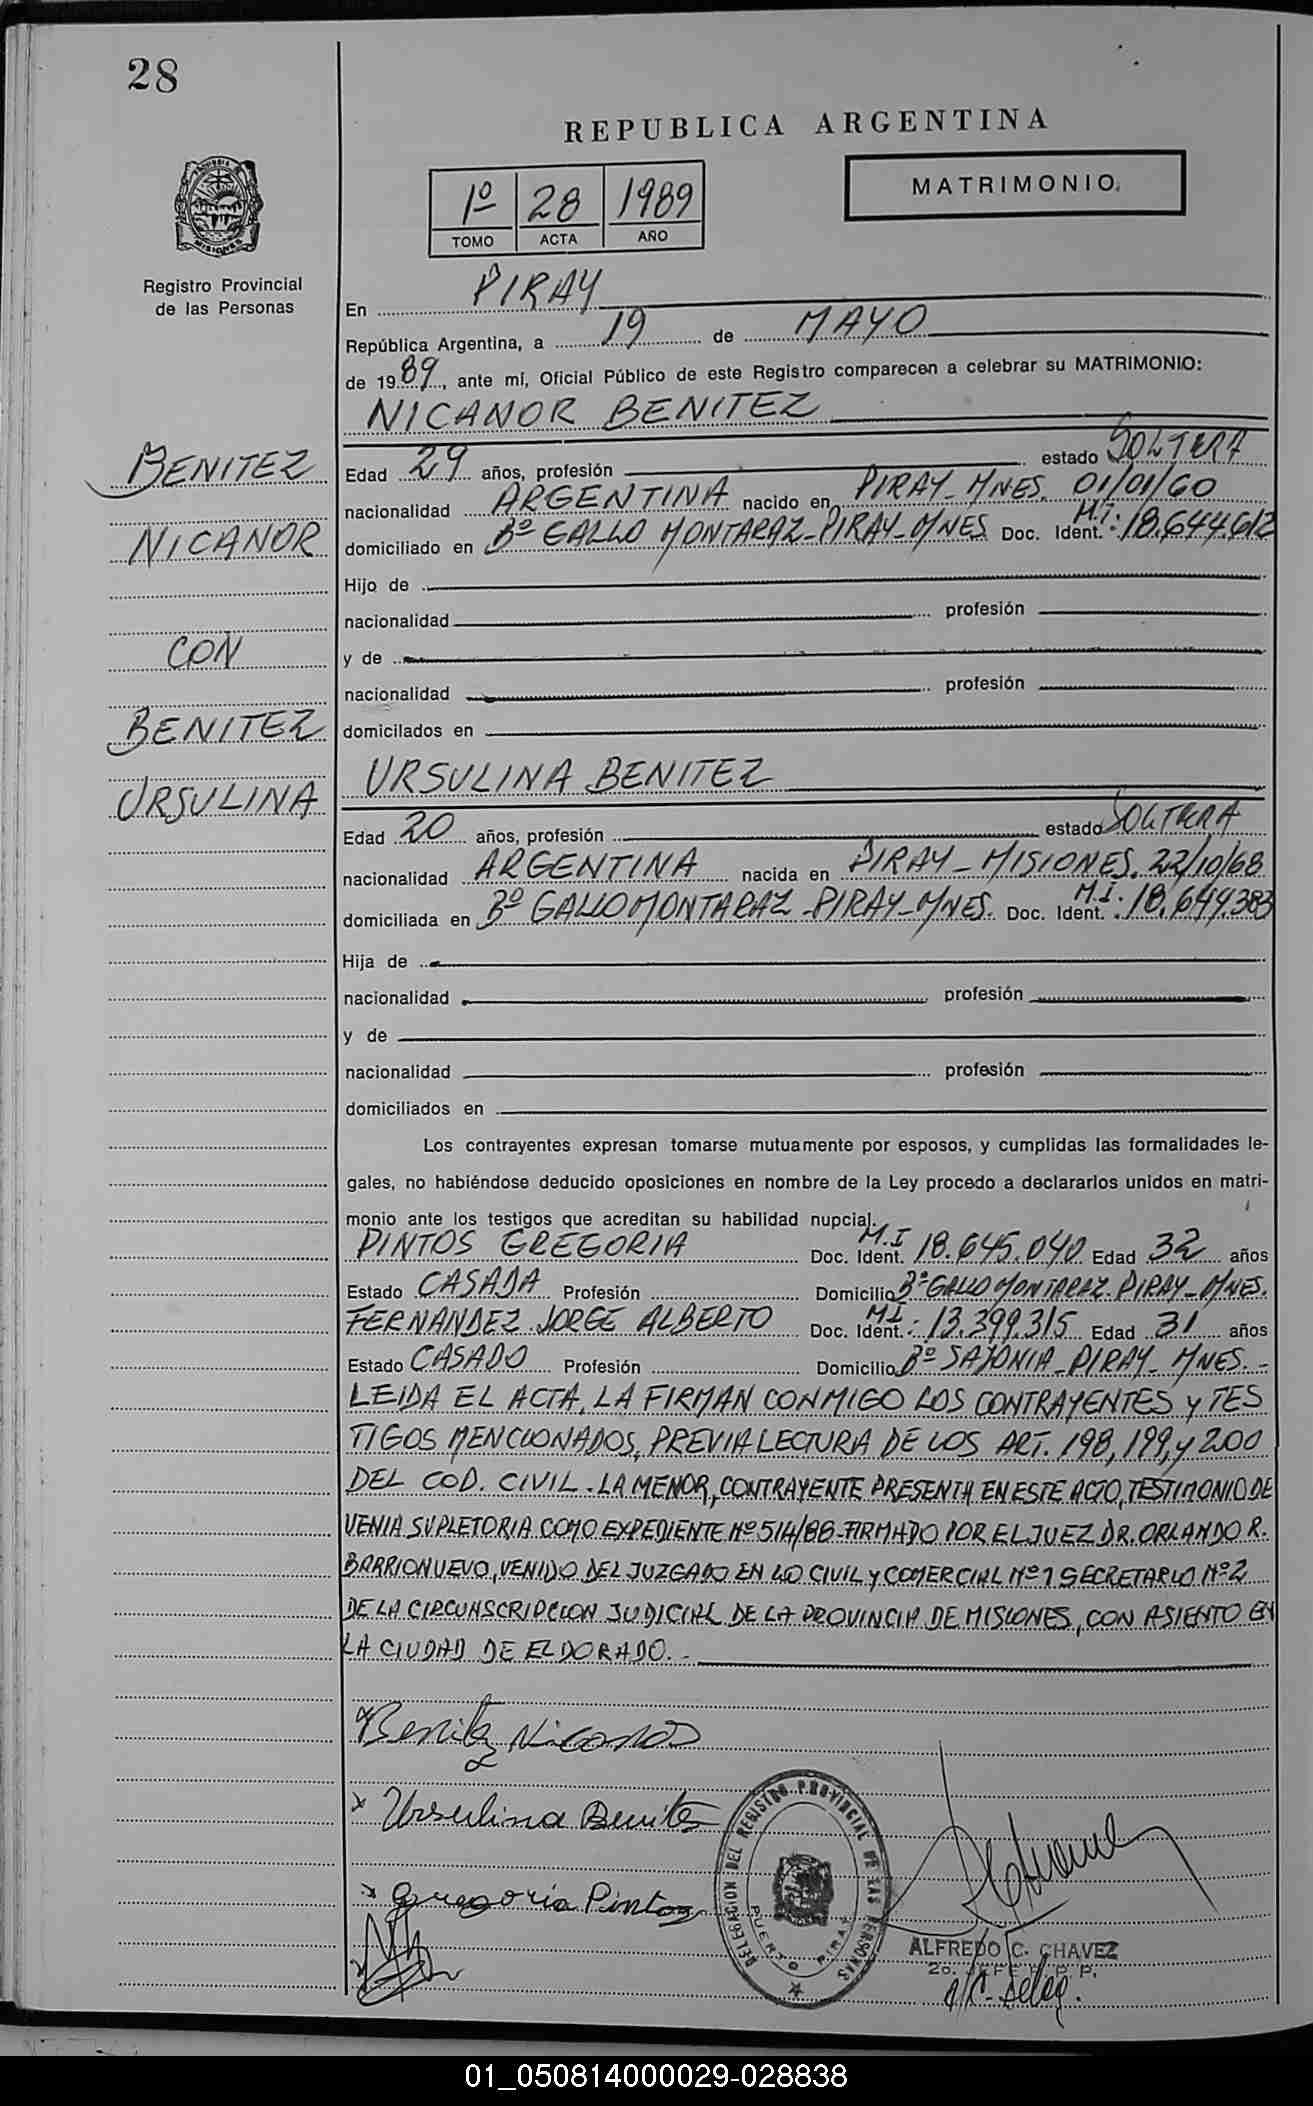 28
REPUBLICA ARGENTINA
1º 28 1989
TOMO ACTA AÑO
MATRIMONIO.
Registro Provincial
de las Personas
En PIRAY
República Argentina, a 19 de MAYO
de 1989, ante mí, Oficial Público de este Registro comparecen a celebrar su MATRIMONIO:
NICANOR BENITEZ
BENITEZ
NICANOR
CON
BENITEZ
URSULINA
Edad 29 años, profesión estado SOLTERA
nacionalidad ARGENTINA nacido en PIRAY-MNES. 01/01/60
domiciliado en Bº GALLO MONTARAZ-PIRAY-MNES Doc. Ident. M.I: 18.644.612
Hijo de
nacionalidad profesión
y de
nacionalidad profesión
domicilados en
URSULINA BENITEZ
Edad 20 años, profesión estado SOLTERA
nacionalidad ARGENTINA nacida en PIRAY-MISIONES. 22/10/68
domiciliada en Bº GALLO MONTARAZ-PIRAY-MNES. Doc. Ident. M.I. 18.644.383
Hija de
nacionalidad profesión
y de
nacionalidad profesión
domiciliados en
Los contrayentes expresan tomarse mutuamente por esposos, y cumplidas las formalidades le-
gales, no habiéndose deducido oposiciones en nombre de la Ley procedo a declararlos unidos en matri-
monio ante los testigos que acreditan su habilidad nupcial.
PINTOS GREGORIA Doc. Ident. M.I 18.645.040 Edad 32 años
Estado CASADA Profesión Domicilio Bº GALLO MONTARAZ-PIRAY-MNES.
FERNANDEZ JORGE ALBERTO Doc. Ident. M.I: 13.399.315 Edad 31 años
Estado CASADO Profesión Domicilio Bº SAJONIA-PIRAY-MNES.-
LEIDA EL ACTA, LA FIRMAN CONMIGO LOS CONTRAYENTES y TES
TIGOS MENCIONADOS, PREVIA LECTURA DE LOS ART. 198, 199, y 200
DEL COD. CIVIL.-LA MENOR, CONTRAYENTE PRESENTA EN ESTE ACTO, TESTIMONIO DE
VENIA SUPLETORIA COMO EXPEDIENTE Nº 514/88-FIRMADO POR EL JUEZ DR. ORLANDO R.
BARRIONUEVO, VENIDO DEL JUZGADO EN LO CIVIL y COMERCIAL Nº 1 SECRETARIO Nº 2
DE LA CIRCUNSCRIPCION JUDICIAL DE LA PROVINCIA DE MISIONES, CON ASIENTO EN
LA CIUDAD DE ELDORADO.-
x Benitez Nicanor
x Ursulina Benitez
x Gregoria Pintos
DELEGACION DEL REGISTRO PROVINCIAL DE LAS PERSONAS
PUERTO PIRAY
ALFREDO C. CHAVEZ
2o. JEFE R. P. P.
a/c. Deleg.
01_050814000029-028838